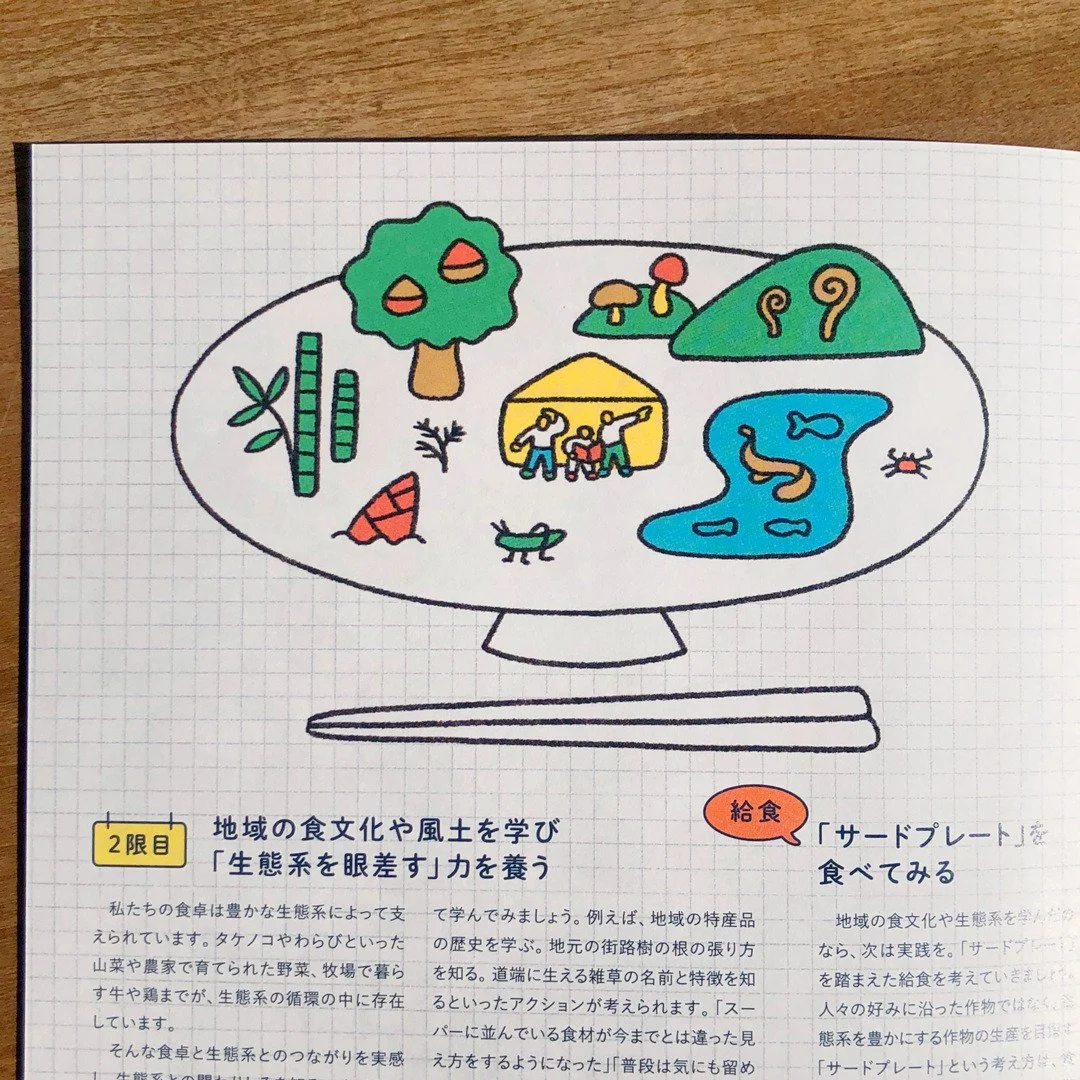 2限目
地域の食文化や風土を学び
「生態系を眼差す」力を養う
私たちの食卓は豊かな生態系によって支
えられています。タケノコやわらびといった
山菜や農家で育てられた野菜、牧場で暮ら
す牛や鶏までが、生態系の循環の中に存在
しています。
そんな食卓と生態系とのつながりを実感
て学んでみましょう。例えば、地域の特産品
の歴史を学ぶ。地元の街路樹の根の張り方
を知る。道端に生える雑草の名前と特徴を知
るといったアクションが考えられます。「スー
パーに並んでいる食材が今までとは違った見
え方をするようになった」「普段は気にも留め
給食
「サードプレート」を
食べてみる
地域の食文化や生態系を学んだの
なら、次は実践を。「サードプレート」
を踏まえた給食を考えていきましょう。
人々の好みに沿った作物ではなく、
態系を豊かにする作物の生産を目指す
「サードプレート」という考え方は、食